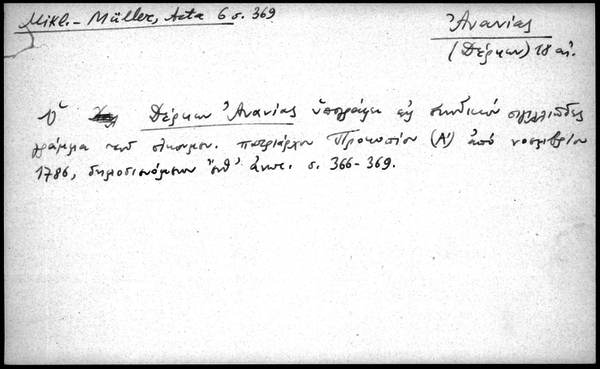 Mikl.- Müller, Acta 6 σ. 369
Ἀνανίας
(Δέρκων) 18 αἰ.
Ὁ Δέρκων Ἀνανίας ὑπογράφει εἰς συνοδικὸν σιγιλλιῶδες
γράμμα τοῦ οἰκουμεν. πατριάρχου Προκοπίου (Α') ἀπὸ νοεμβρίου
1786, δημοσιευόμενον ἔνθ' ἀνωτ. σ. 366-369.